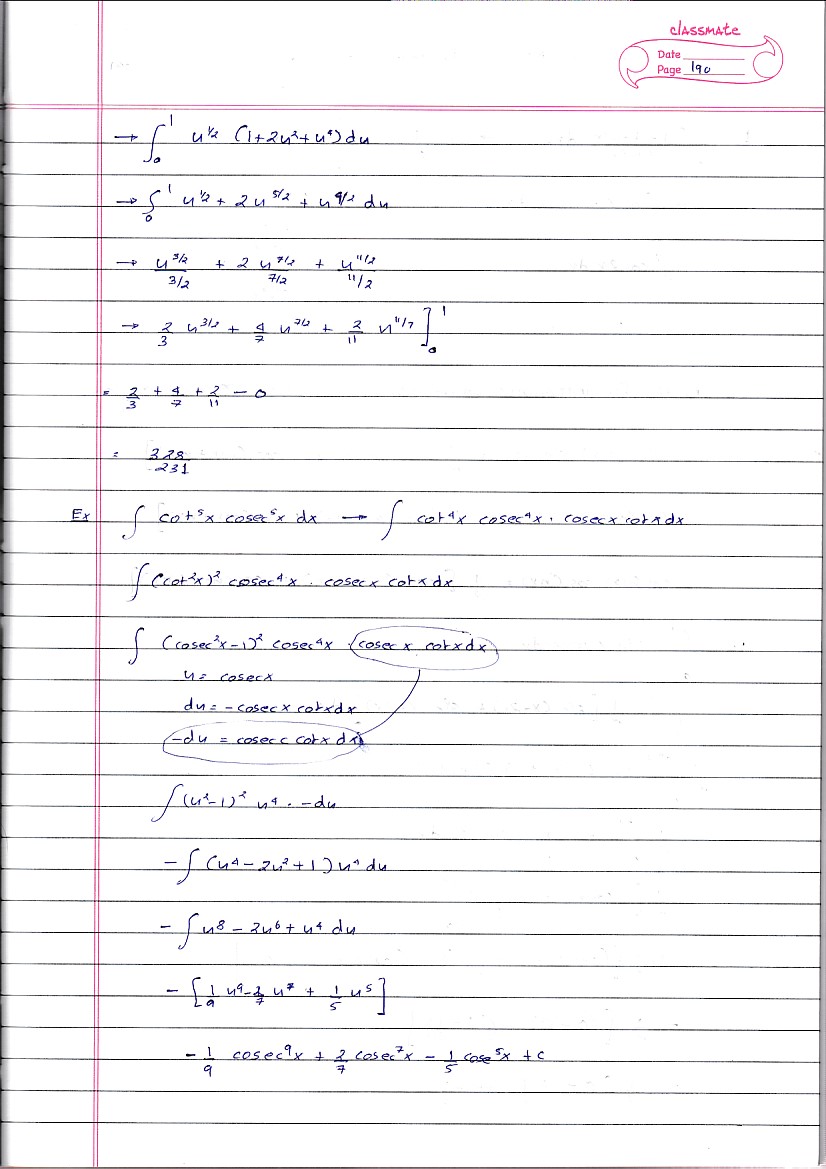 classmate
Date
Page 190
→ ∫₀¹ u^1/2 (1+2u²+u⁴)du
→ ∫₀¹ u^1/2 + 2u^5/2 + u^9/2 du
→ u^3/2 / 3/2 + 2 u^7/2 / 7/2 + u^11/2 / 11/2
→ 2/3 u^3/2 + 4/7 u^7/2 + 2/11 u^11/7 ]₀¹
= 2/3 + 4/7 + 2/11 - 0
= 328/231
Ex ∫ cot⁵x cosec⁵x dx → ∫ cot⁴x cosec⁴x . cosecx cotx dx
∫ (cot²x)² cosec⁴x . cosecx cotx dx
∫ (cosec²x-1)² cosec⁴x . cosec x cotxdx
u = cosecx
du = -cosecx cotxdx
-du = cosec c cotx dx
∫(u²-1)² u⁴ . -du
-∫ (u⁴-2u²+1)u⁴ du
-∫u⁸ - 2u⁶ + u⁴ du
-[1/9 u⁹ - 2/7 u⁷ + 1/5 u⁵]
-1/9 cosec⁹x + 2/7 cosec⁷x - 1/5 cose⁵x + c